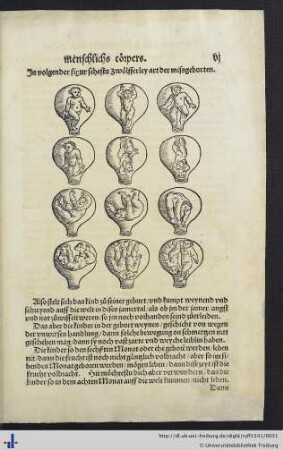 menschlichs cörpers. vj
In volgender figur sihestu zwölfferley art der missgeburten.
Also stelt sich das kind zů seiner geburt / vnd kumpt weynend vnd
schreyend auff die welt in dises jamertal / als ob jm der jamer / angst
vnd not zůwissen weren / so jm noch vorhanden seind zůerleiden.
Das aber die kinder in der geburt weynen / geschicht von wegen
der vnwirsen handlung / dann solche bewegung on schmertzen nit
geschehen mag / dann sy noch vast zarte vnd weyche leiblin haben.
Die kinder so den sechsten Monat oder ehe geborn werden / leben
nit / dann die frucht ist noch nit gäntzlich volbracht / aber so im si-
benden Monat geboren werden / mögen leben / dann diß zeyt ist die
frucht volbracht. Hie möchtestu dich aber verwundern / das die
kinder so in dem achten Monat auff die welt kummen / nit leben.
Dann
http://dl.ub.uni-freiburg.de/diglit/ryff1541/0031
© Universitätsbibliothek Freiburg